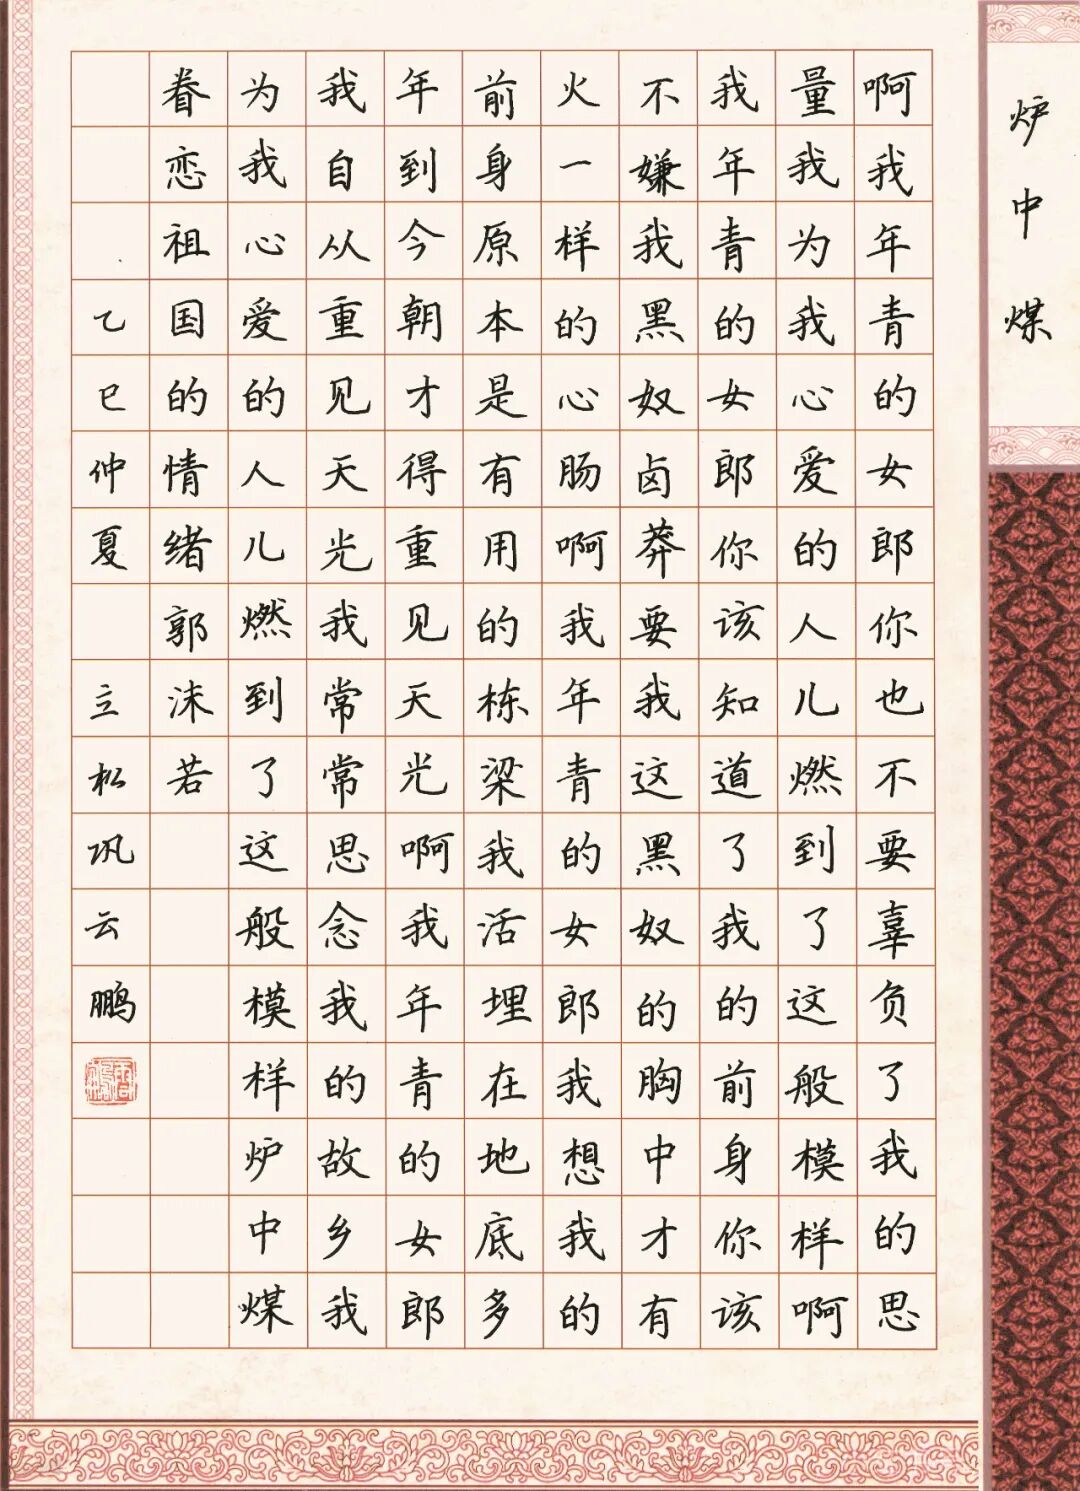 炉中煤
啊我年青的女郎你也不要辜负了我的思
量我为我心爱的人儿燃到了这般模样啊
我年青的女郎你该知道了我的前身你该
不嫌我黑奴卤莽要我这黑奴的胸中才有
火一样的心肠啊我年青的女郎我想我的
前身原本是有用的栋梁我活埋在地底多
年到今朝才得重见天光啊我年青的女郎
我自从重见天光我常常思念我的故乡我
为我心爱的人儿燃到了这般模样炉中煤
眷恋祖国的情绪郭沫若
乙巳仲夏立松巩云鹏